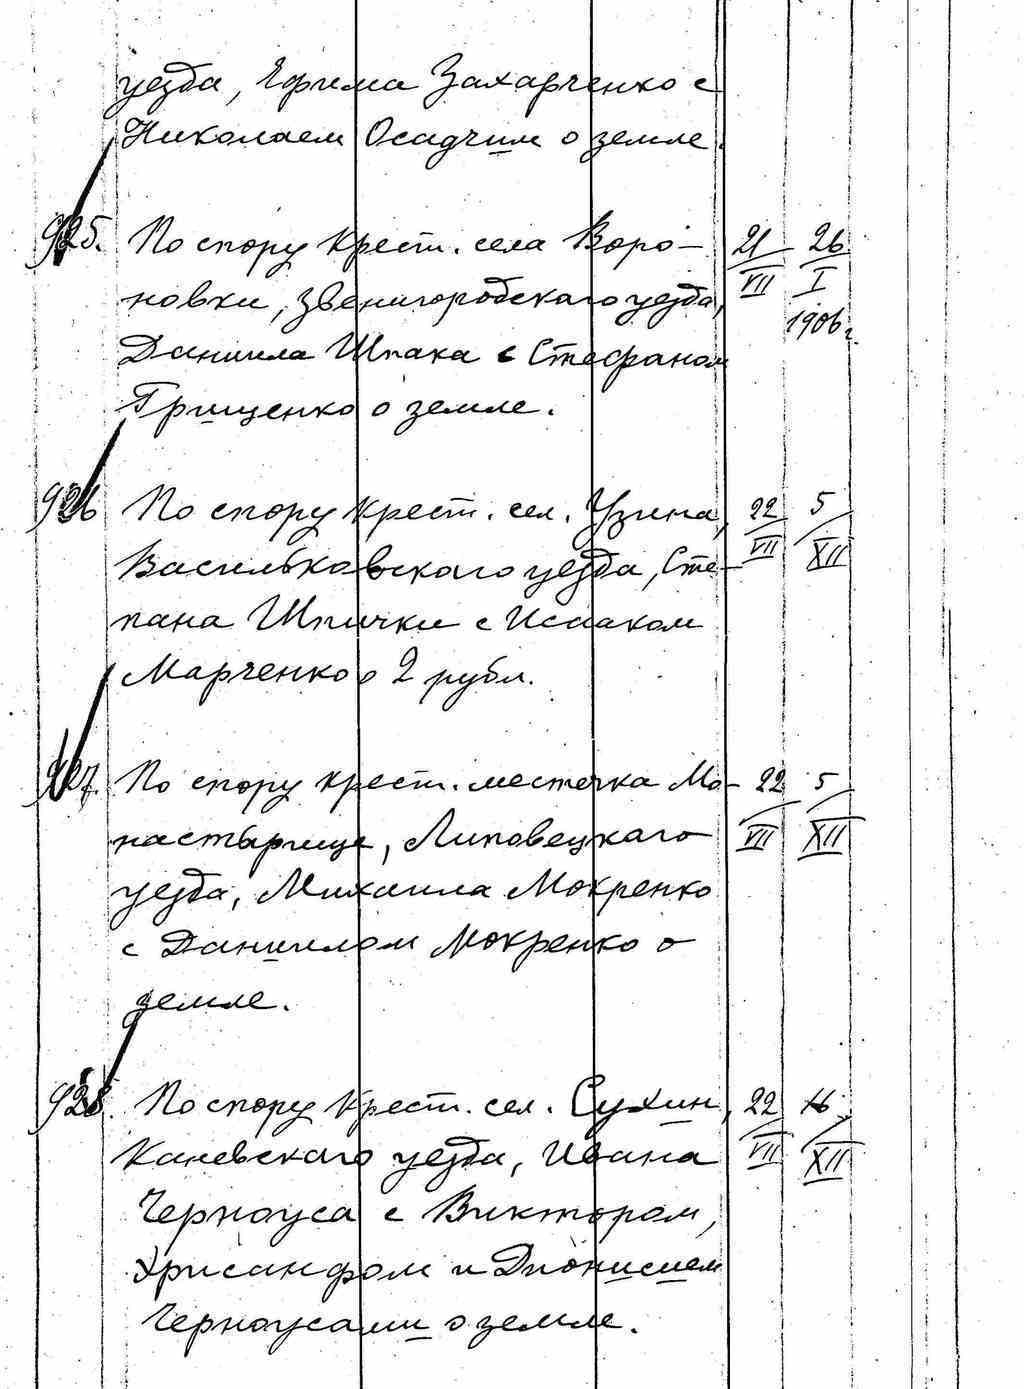 уезда, Ефима Захарченко с
Николаем Осадчим о земле.
925. По спору крест. села Воро- 21/VII 26/I
новки, Звенигородскаго уезда, 1906 г.
Даниила Шпака с Стефаном
Грищенко о земле.
926 По спору крест. сел. Узина, 22/VII 5/XII
Васильковскаго уезда, Сте-
пана Шпички с Исааком
Марченко о 2 рубл.
927. По спору крест. местечка Мо- 22/VII 5/XII
настырище, Липовецкаго
уезда, Михаила Мокренко
с Даниилом Мокренко о
земле.
928. По спору крест. сел. Сухин, 22/VII 16/XII
Каневскаго уезда, Ивана
Черноуса с Виктором,
Хрисанфом и Дионисием
Черноусами о земле.